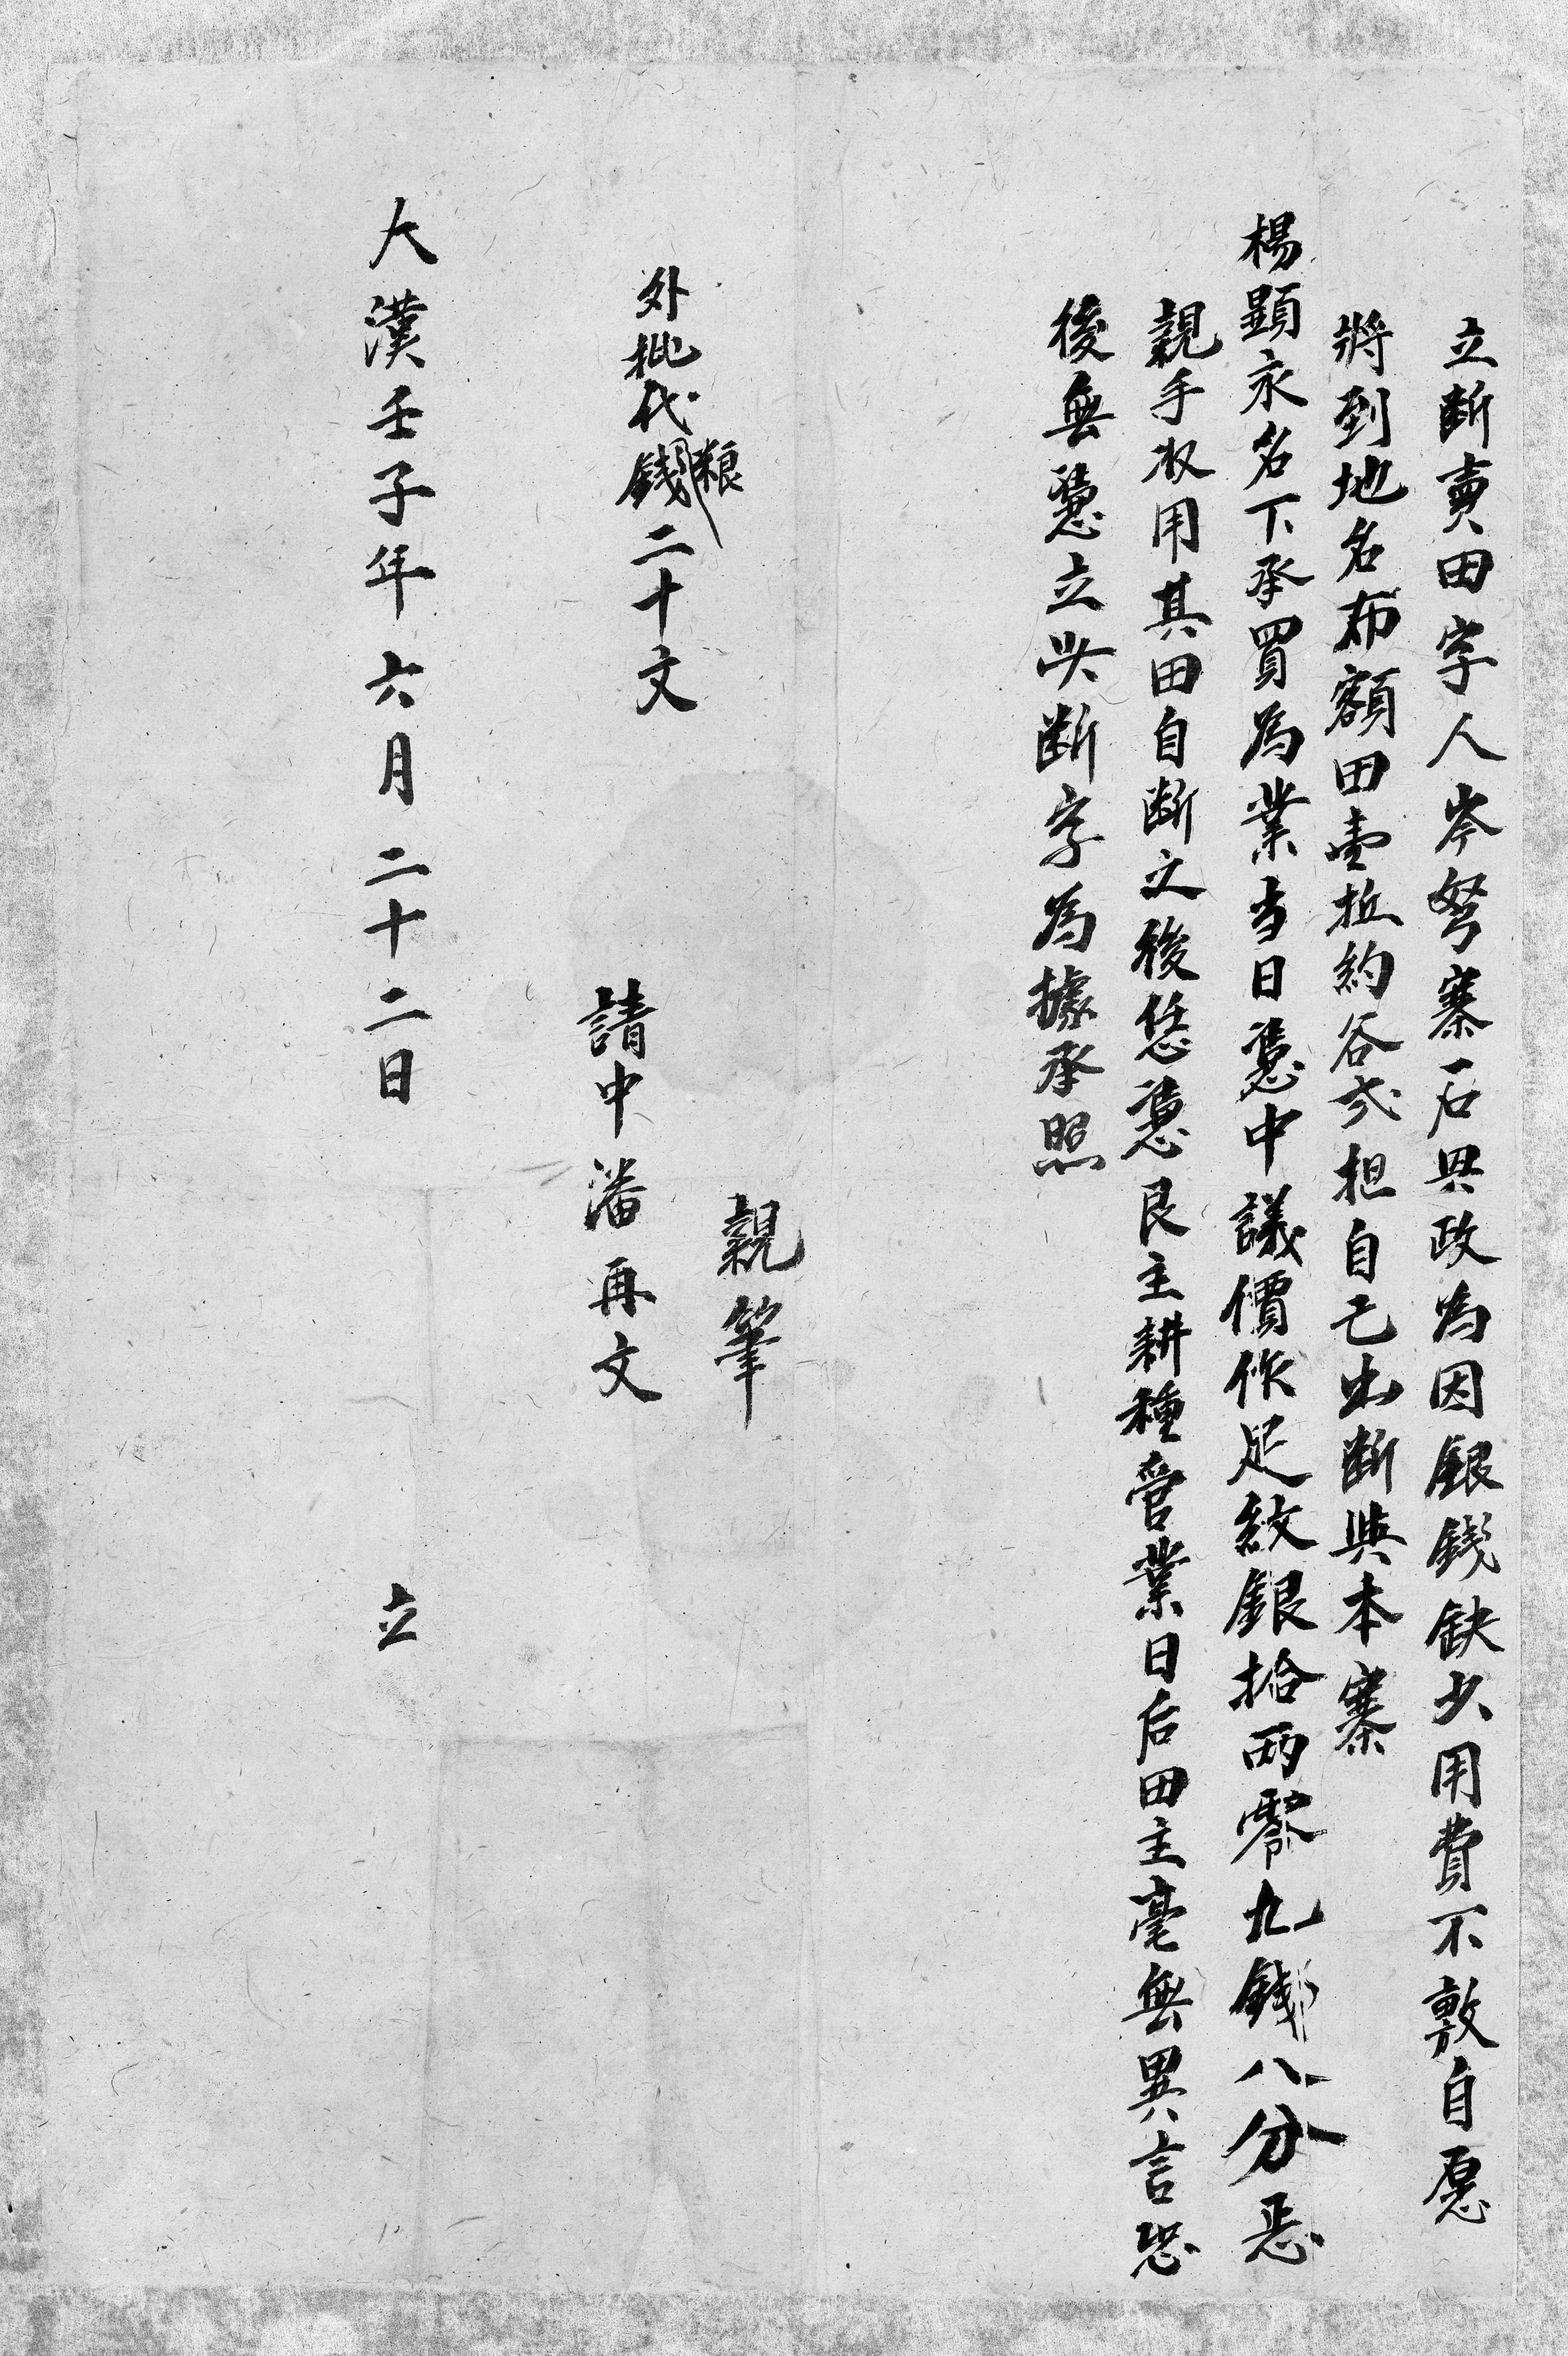 立断賣田字人岑努寨石興政為因銀錢缺少用費不敷自愿
將到地名布額田壹坵約谷弍担自己出断與本寨
楊顕永名下承買為業当日憑中議價作足紋銀拾両零九錢八分悉
親手收用其田自断之後恁憑艮主耕種管業日后田主毫無異言恐
後無憑立此断字為據承照
親筆
外批代粮錢二十文
請中潘再文
大漢壬子年六月二十二日 立